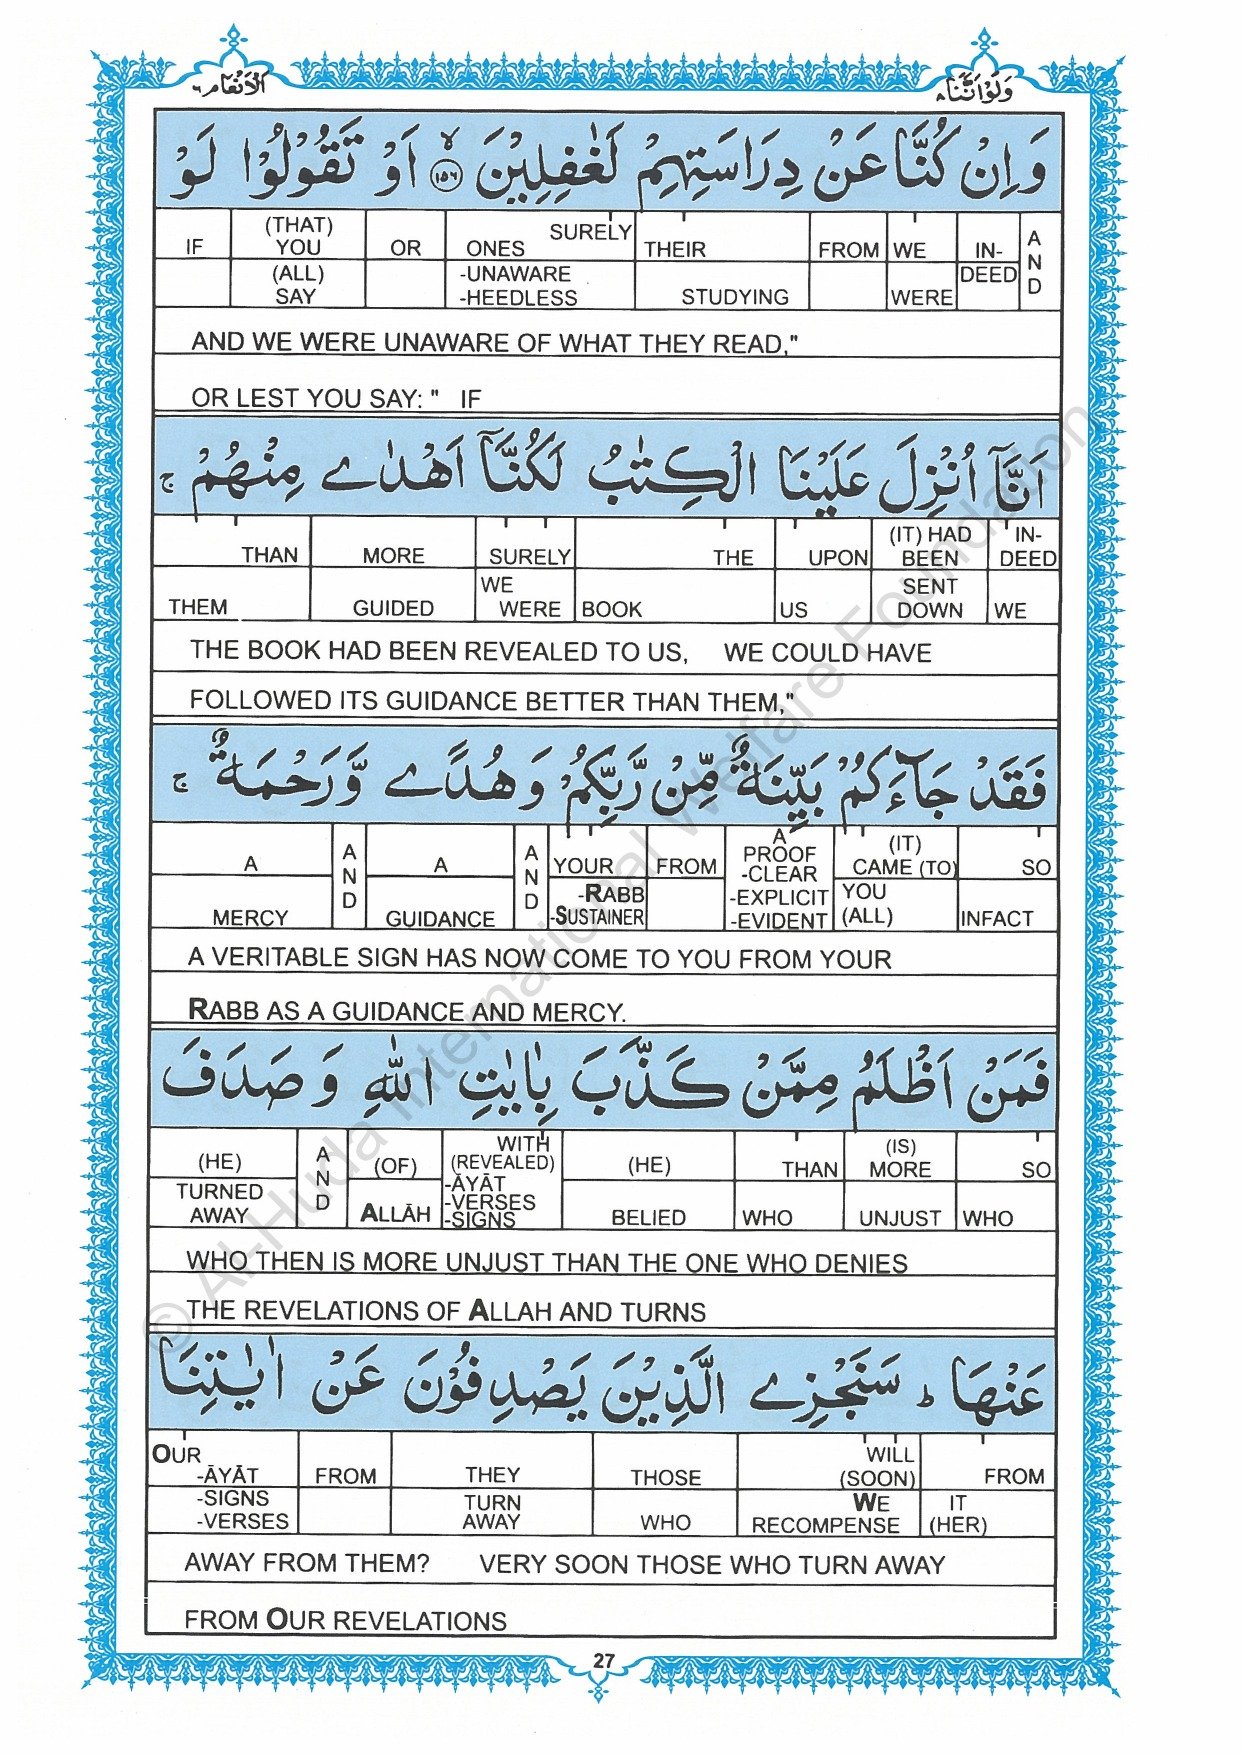 الانعام ٦
ولواننا ٨
وَاِنْ كُنَّا عَنْ دِرَاسَتِهِمْ لَغٰفِلِيْنَ ۙ ١٥٦ اَوْ تَقُوْلُوْا لَوْ
IF (THAT) YOU OR ONES SURELY THEIR FROM WE IN- AND
(ALL) SAY -UNAWARE -HEEDLESS STUDYING WERE DEED
AND WE WERE UNAWARE OF WHAT THEY READ,"
OR LEST YOU SAY: " IF
اَنَّاۤ اُنْزِلَ عَلَيْنَا الْكِتٰبُ لَكُنَّاۤ اَهْدٰى مِنْهُمْ ج
THAN MORE SURELY THE UPON (IT) HAD BEEN IN- DEED
THEM GUIDED WE WERE BOOK US SENT DOWN WE
THE BOOK HAD BEEN REVEALED TO US, WE COULD HAVE
FOLLOWED ITS GUIDANCE BETTER THAN THEM,"
فَقَدْ جَآءَكُمْ بَيِّنَةٌ مِّنْ رَّبِّكُمْ وَ هُدًى وَّرَحْمَةٌ ج
A AND A AND YOUR FROM A PROOF -CLEAR (IT) CAME (TO) SO
MERCY GUIDANCE -RABB -SUSTAINER -EXPLICIT -EVIDENT YOU (ALL) INFACT
A VERITABLE SIGN HAS NOW COME TO YOU FROM YOUR
RABB AS A GUIDANCE AND MERCY.
فَمَنْ اَظْلَمُ مِمَّنْ كَذَّبَ بِاٰيٰتِ اللّٰهِ وَ صَدَفَ
(HE) AND (OF) WITH (REVEALED) (HE) THAN (IS) MORE SO
TURNED AWAY ALLĀH -ĀYĀT -VERSES -SIGNS BELIED WHO UNJUST WHO
WHO THEN IS MORE UNJUST THAN THE ONE WHO DENIES
THE REVELATIONS OF ALLAH AND TURNS
عَنْهَا ط سَنَجْزِى الَّذِيْنَ يَصْدِفُوْنَ عَنْ اٰيٰتِنَا
OUR -ĀYĀT FROM THEY THOSE WILL (SOON) FROM
-SIGNS -VERSES TURN AWAY WHO WE RECOMPENSE IT (HER)
AWAY FROM THEM? VERY SOON THOSE WHO TURN AWAY
FROM OUR REVELATIONS
27
© Al-Huda International Welfare Foundation